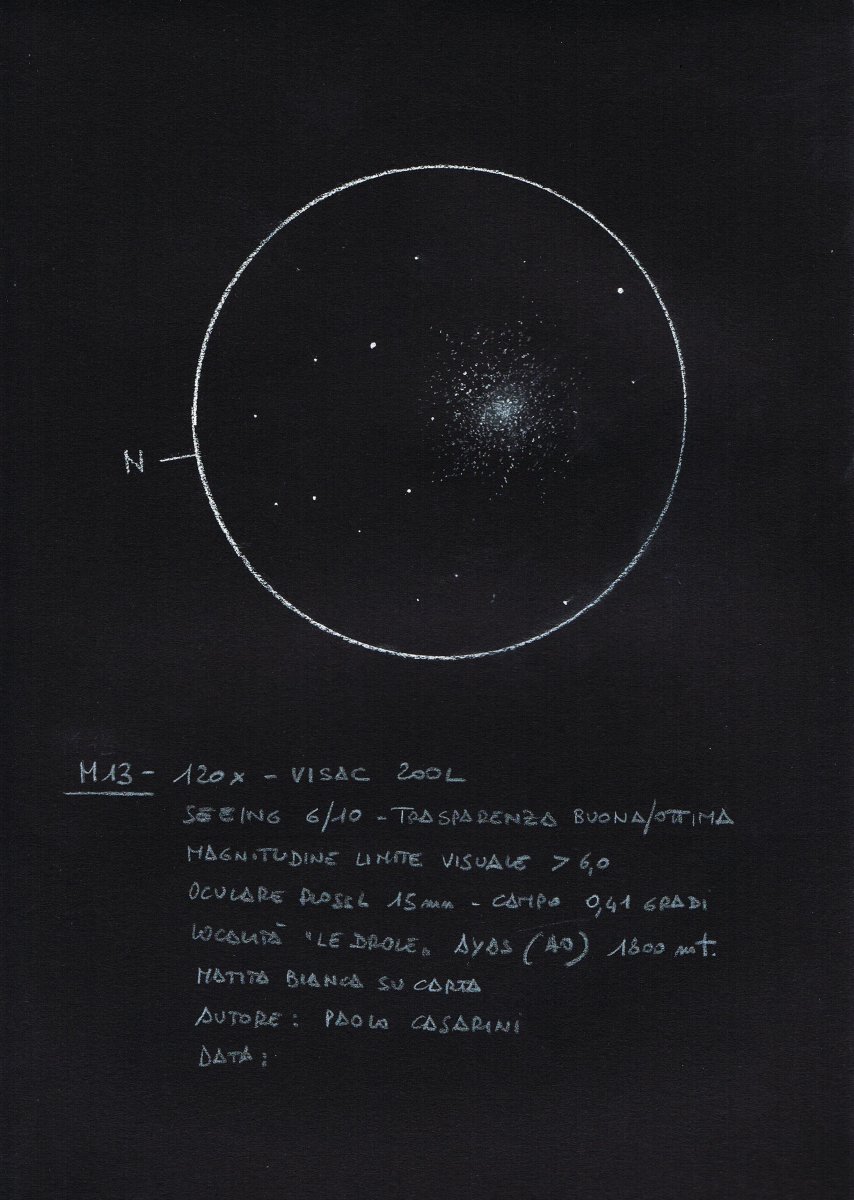 N
M13 - 120x - VISAC 200L
SEEING 6/10 - TRASPARENZA BUONA/OTTIMA
MAGNITUDINE LIMITE VISUALE > 6,0
OCULARE PLOSSL 15mm - CAMPO 0,41 GRADI
LOCALITÀ "LE DROLE" AYAS (AO) 1800 mt.
MATITA BIANCA SU CARTA
AUTORE: PAOLO CASARINI
DATA: